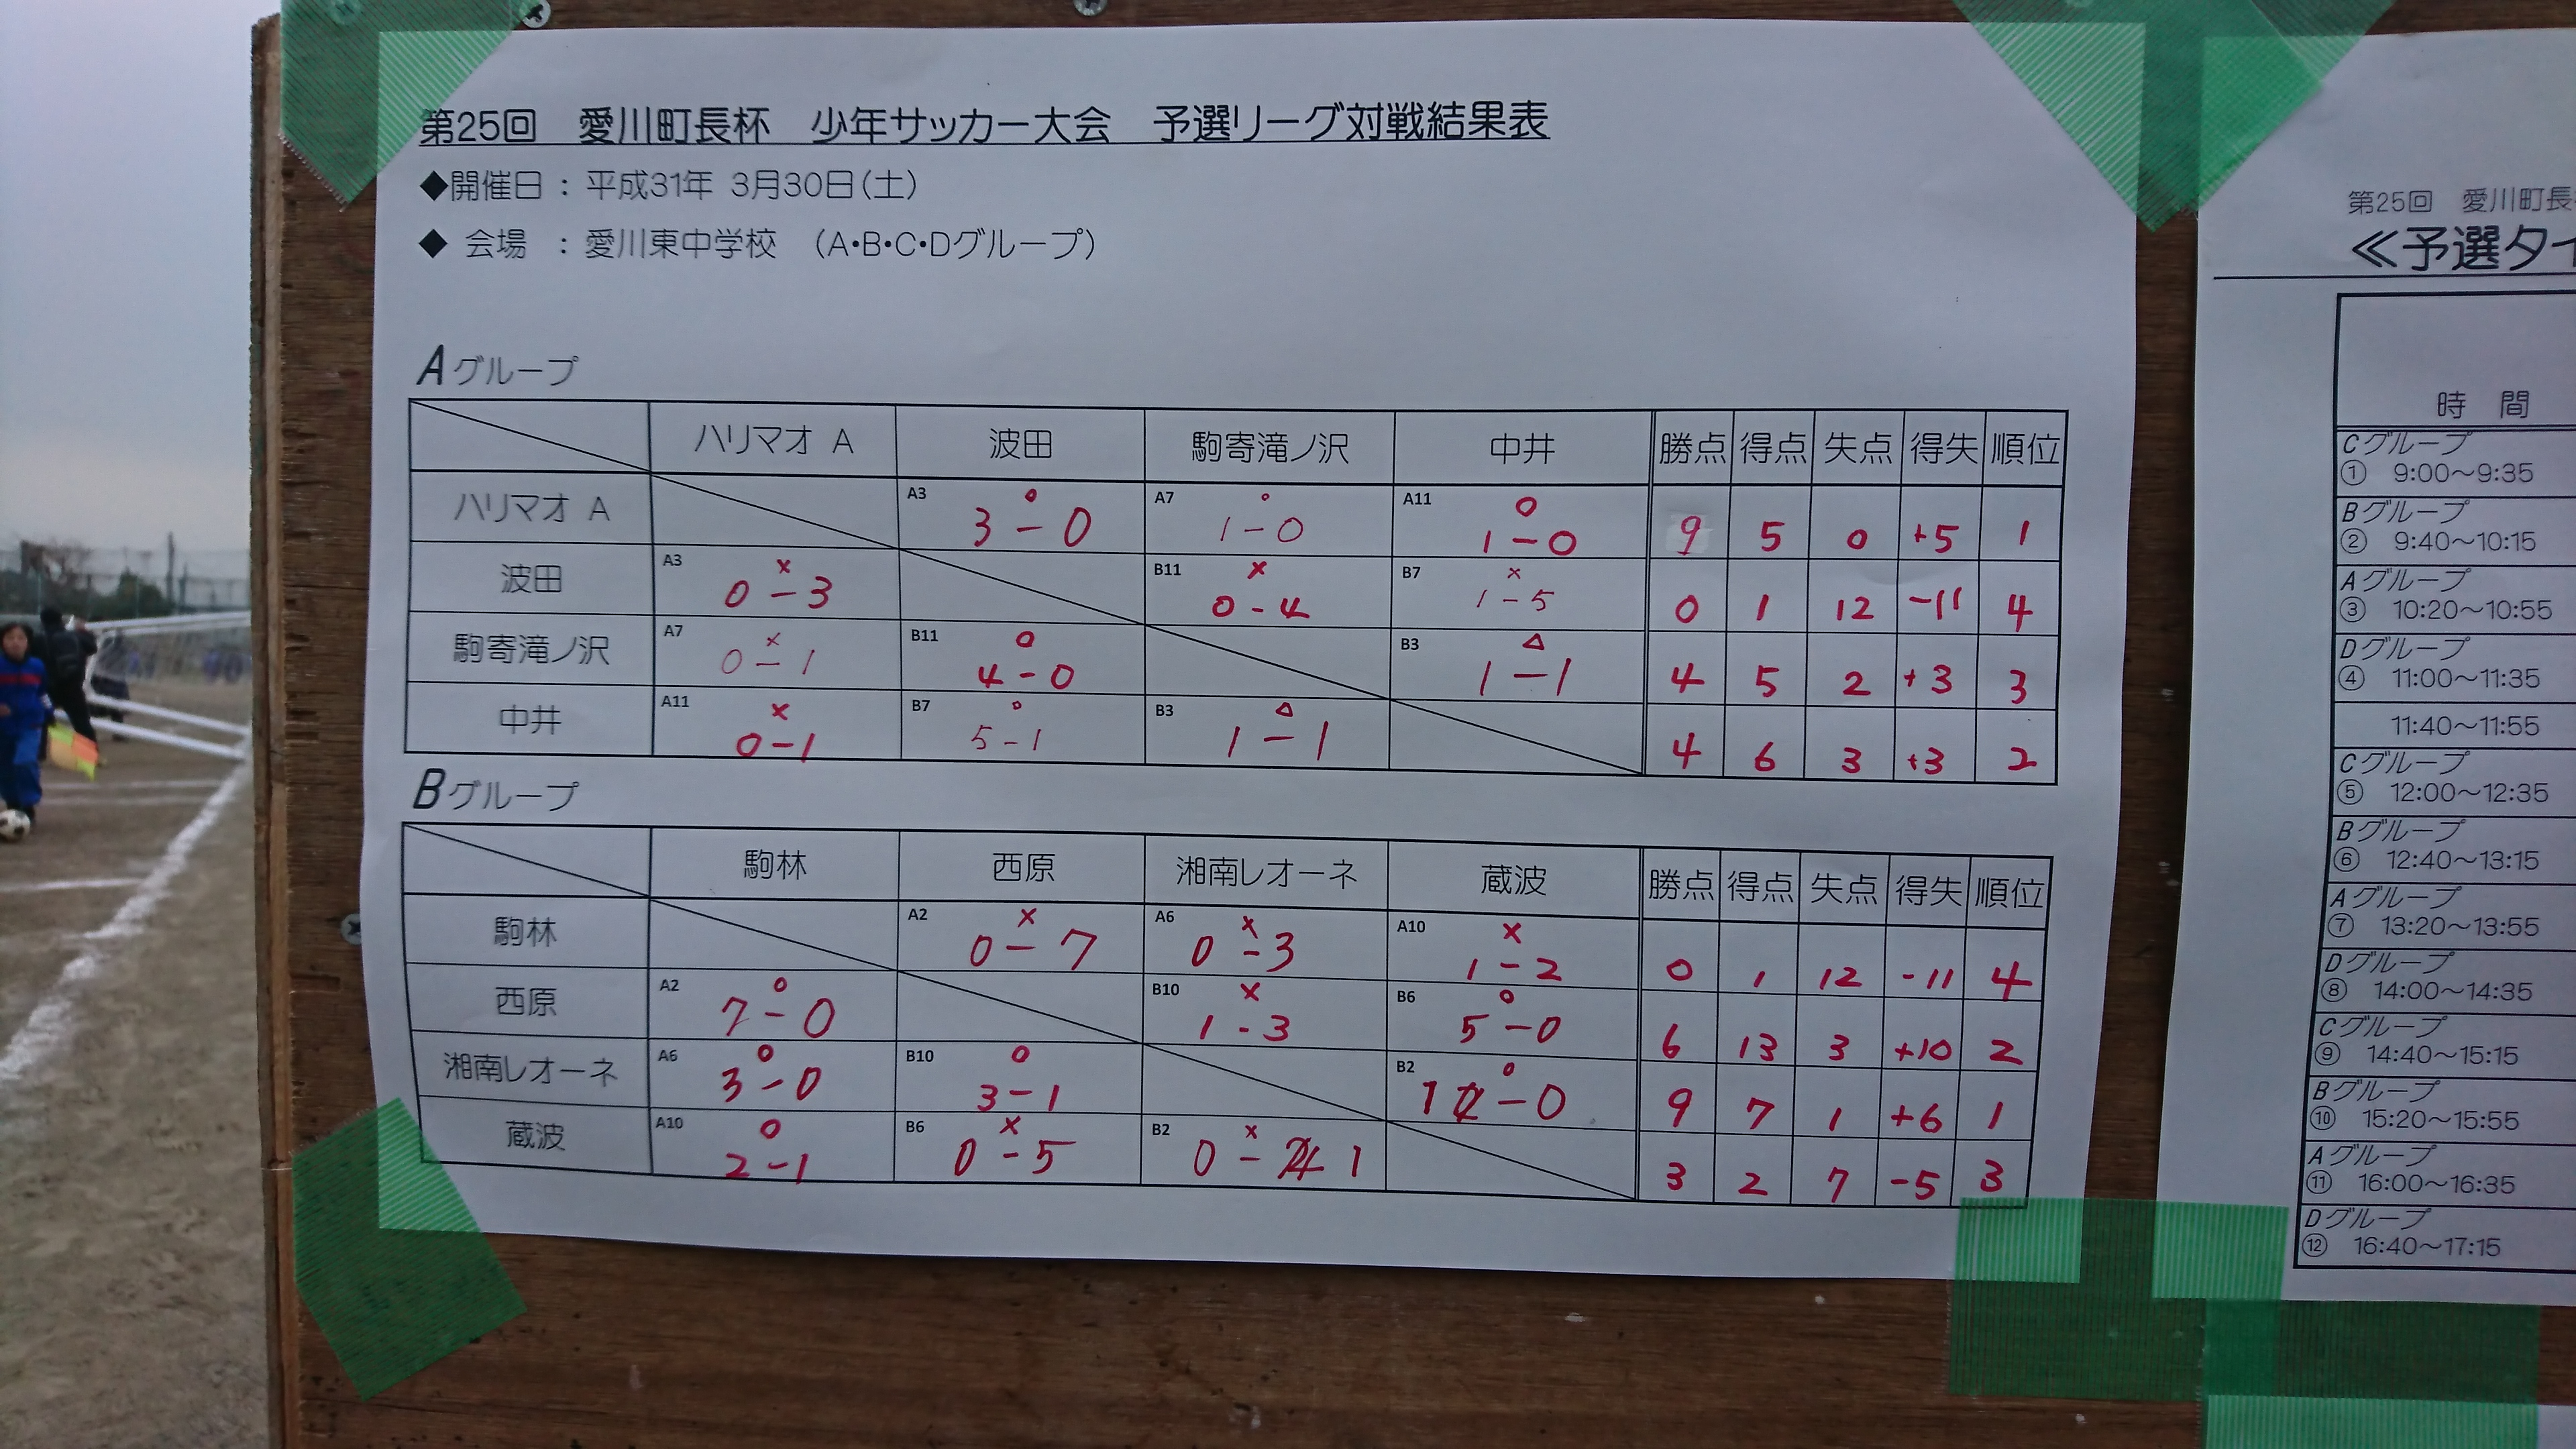 第25回 愛川町長杯 少年サッカー大会 予選リーグ対戦結果表
◆開催日：平成31年 3月30日(土)
◆ 会場 ：愛川東中学校 (A・B・C・Dグループ)
Aグループ
ハリマオ A 波田 駒寄滝ノ沢 中井 勝点 得点 失点 得失 順位
ハリマオ A A3 ○ 3-0 A7 ○ 1-0 A11 ○ 1-0 9 5 0 +5 1
波田 A3 × 0-3 B11 × 0-4 B7 × 1-5 0 1 12 -11 4
駒寄滝ノ沢 A7 × 0-1 B11 ○ 4-0 B3 △ 1-1 4 5 2 +3 3
中井 A11 × 0-1 B7 ○ 5-1 B3 △ 1-1 4 6 3 +3 2
Bグループ
駒林 西原 湘南レオーネ 蔵波 勝点 得点 失点 得失 順位
駒林 A2 × 0-7 A6 × 0-3 A10 × 1-2 0 1 12 -11 4
西原 A2 ○ 7-0 B10 × 1-3 B6 ○ 5-0 6 13 3 +10 2
湘南レオーネ A6 ○ 3-0 B10 ○ 3-1 B2 ○ 1-0 9 7 1 +6 1
蔵波 A10 ○ 2-1 B6 × 0-5 B2 × 0-1 3 2 7 -5 3
第25回 愛川町長
≪予選タイ
時 間
Cグループ
① 9:00～9:35
Bグループ
② 9:40～10:15
Aグループ
③ 10:20～10:55
Dグループ
④ 11:00～11:35
11:40～11:55
Cグループ
⑤ 12:00～12:35
Bグループ
⑥ 12:40～13:15
Aグループ
⑦ 13:20～13:55
Dグループ
⑧ 14:00～14:35
Cグループ
⑨ 14:40～15:15
Bグループ
⑩ 15:20～15:55
Aグループ
⑪ 16:00～16:35
Dグループ
⑫ 16:40～17:15